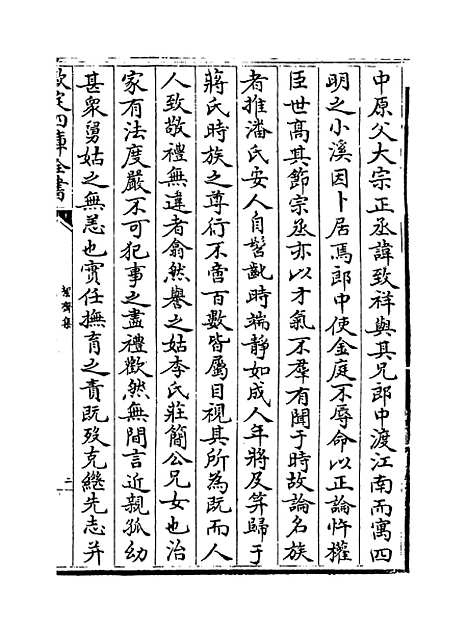 中原父大宗正丞諱致祥與其兄郎中渡江南而寓四
明之小溪因卜居焉郎中使金庭不辱命以正論忤權
臣世髙其節宗丞亦以才氣不羣有聞于時故論名族
者推潘氏安人自髫齔時端静如成人年將及笄歸于
蔣氏時族之尊行不啻百數皆屬目視其所為既而人
人致敬禮無違者翕然譽之姑李氏莊簡公兄女也治
家有法度嚴不可犯事之盡禮歡然無間言近親孤幼
甚衆舅姑之無恙也實任撫育之責既歿克繼先志并
欽定四庫全書
絜齋集
二